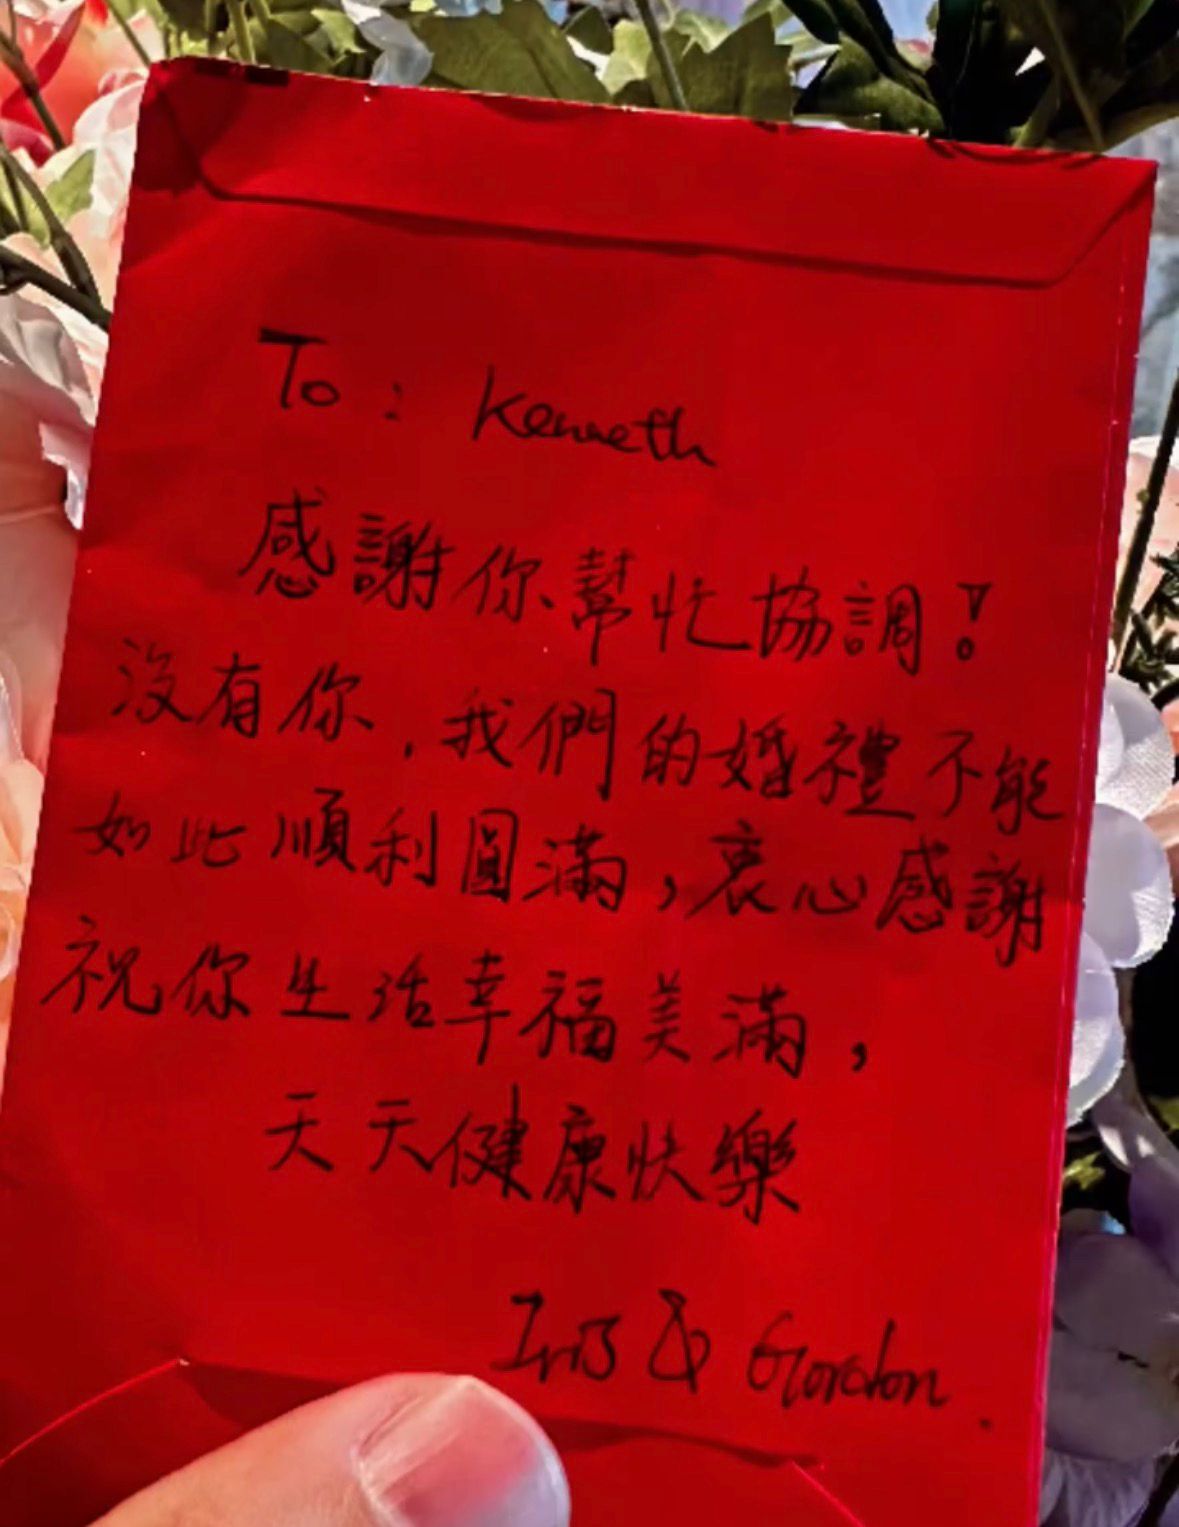 To : Kenneth
感謝你幫忙協調!
沒有你,我們的婚禮不能
如此順利圓滿,衷心感謝
祝你生活幸福美滿,
天天健康快樂
Iris & Gordon.